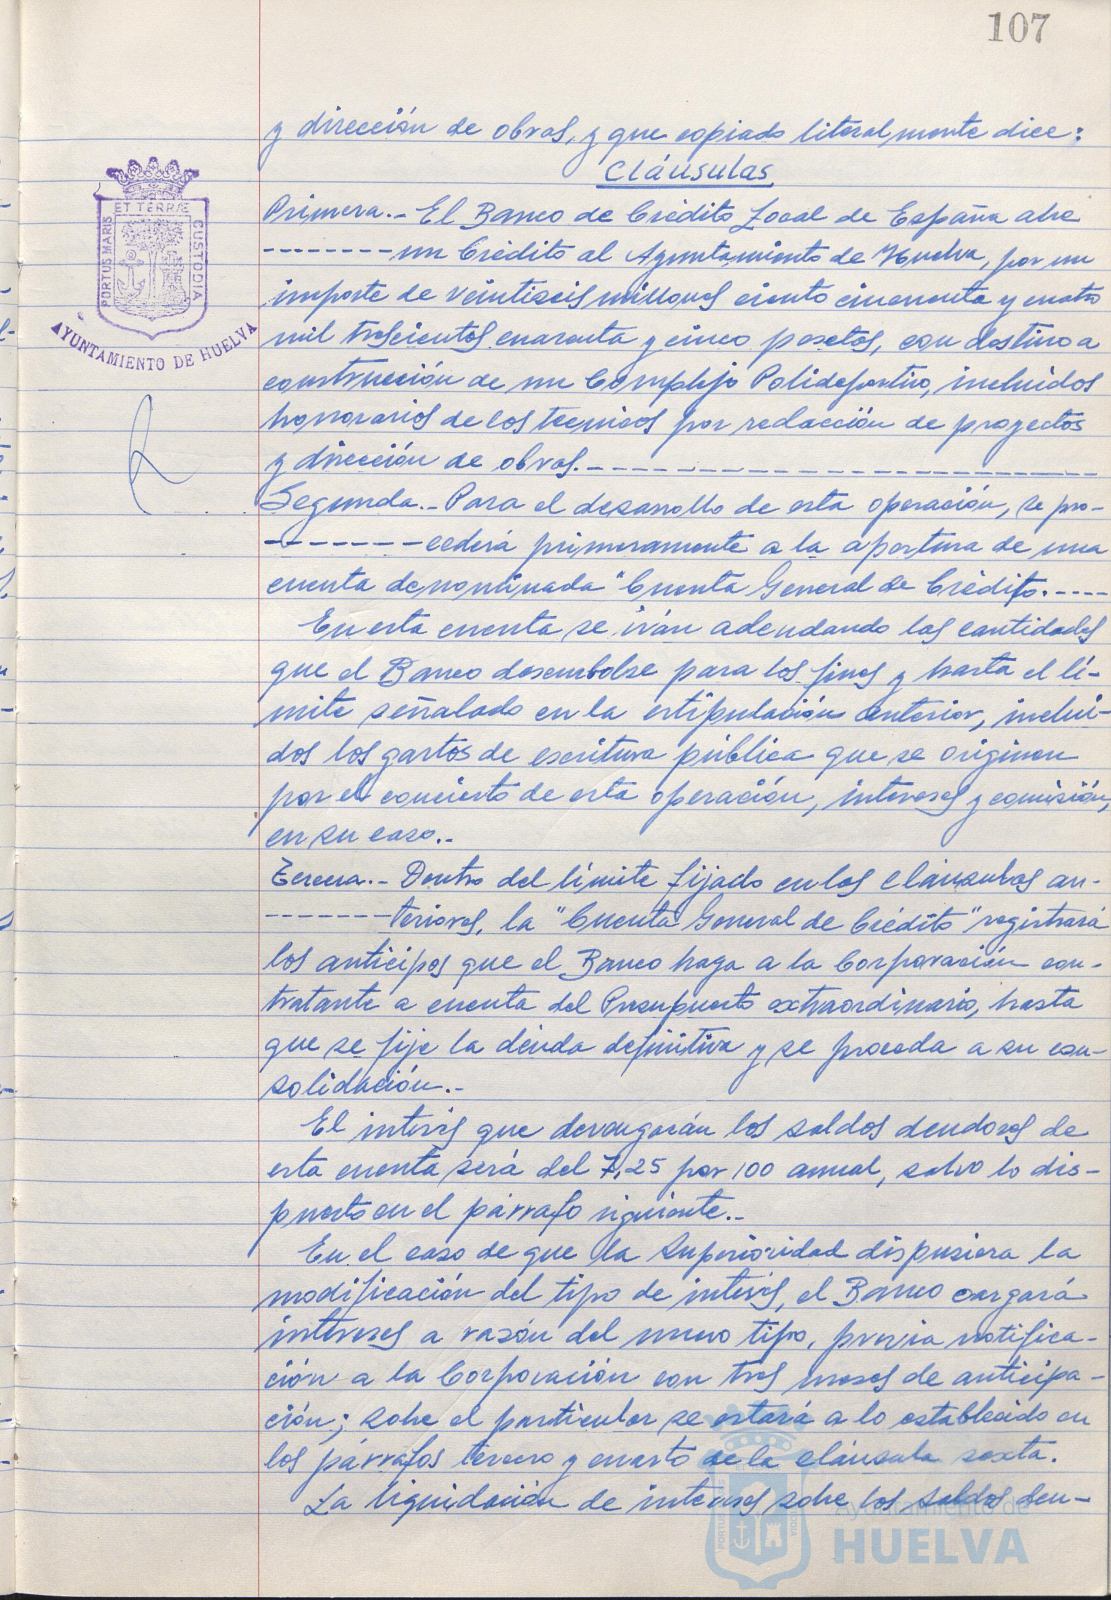 107
y dirección de obras, y que copiado literalmente dice:
Cláusulas
Primera.- El Banco de Crédito Local de España abre
-------- un Crédito al Ayuntamiento de Huelva, por un
importe de veintiseis millones ciento cincuenta y cuatro
mil trescientas cuarenta y cinco pesetas, con destino a
construcción de un Complejo Polideportivo, incluidos
honorarios de los tecnicos por redacción de proyectos
y dirección de obras.-----------------------------
Segunda.- Para el desarrollo de esta operación, se pro-
-------- cederá primeramente a la apertura de una
cuenta denominada "Cuenta General de Crédito.----
En esta cuenta se irán adeudando las cantidades
que el Banco desembolse para los fines y hasta el lí-
mite señalado en la estipulación anterior, inclui-
dos los gastos de escritura pública que se originen
por el concierto de esta operación, intereses y comisión,
en su caso.-
Tercera.- Dentro del límite fijado en las cláusulas an-
-------- teriores, la "Cuenta General de Crédito" registrará
los anticipos que el Banco haga a la Corporación con-
tratante a cuenta del Presupuesto extraordinario, hasta
que se fije la deuda definitiva y se proceda a su con-
solidación.-
El interés que devengarán los saldos deudores de
esta cuenta será del 7,25 por 100 anual, salvo lo dis-
puesto en el párrafo siguiente.-
En el caso de que la Superioridad dispusiera la
modificación del tipo de interés, el Banco cargará
intereses a razón del nuevo tipo, previa notifica-
ción a la Corporación con tres meses de anticipa-
ción; sobre el particular se estará a lo establecido en
los párrafos tercero y cuarto de la cláusula sexta.
La liquidación de intereses sobre los saldos deu-
PORTUS MARIS
ET TERRÆ
CUSTODIA
AYUNTAMIENTO DE HUELVA
Ayuntamiento de
HUELVA